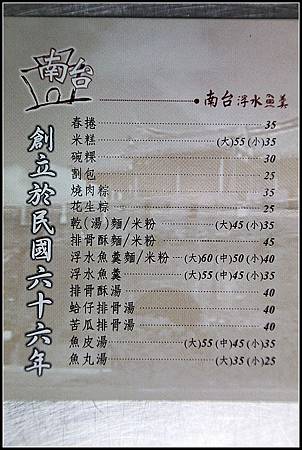 南台
創立於民國六十六年
南台浮水魚羹
春捲 35
米糕 (大)55 (小)35
碗粿 30
割包 25
燒肉粽 35
花生粽 25
乾(湯)麵/米粉 (大)45 (小)35
排骨酥麵/米粉 45
浮水魚羹麵/米粉 (大)60 (中)50 (小)40
浮水魚羹 (大)55 (中)45 (小)35
排骨酥湯 40
蛤仔排骨湯 40
苦瓜排骨湯 40
魚皮湯 (大)55 (中)45 (小)35
魚丸湯 (大)35 (小)25